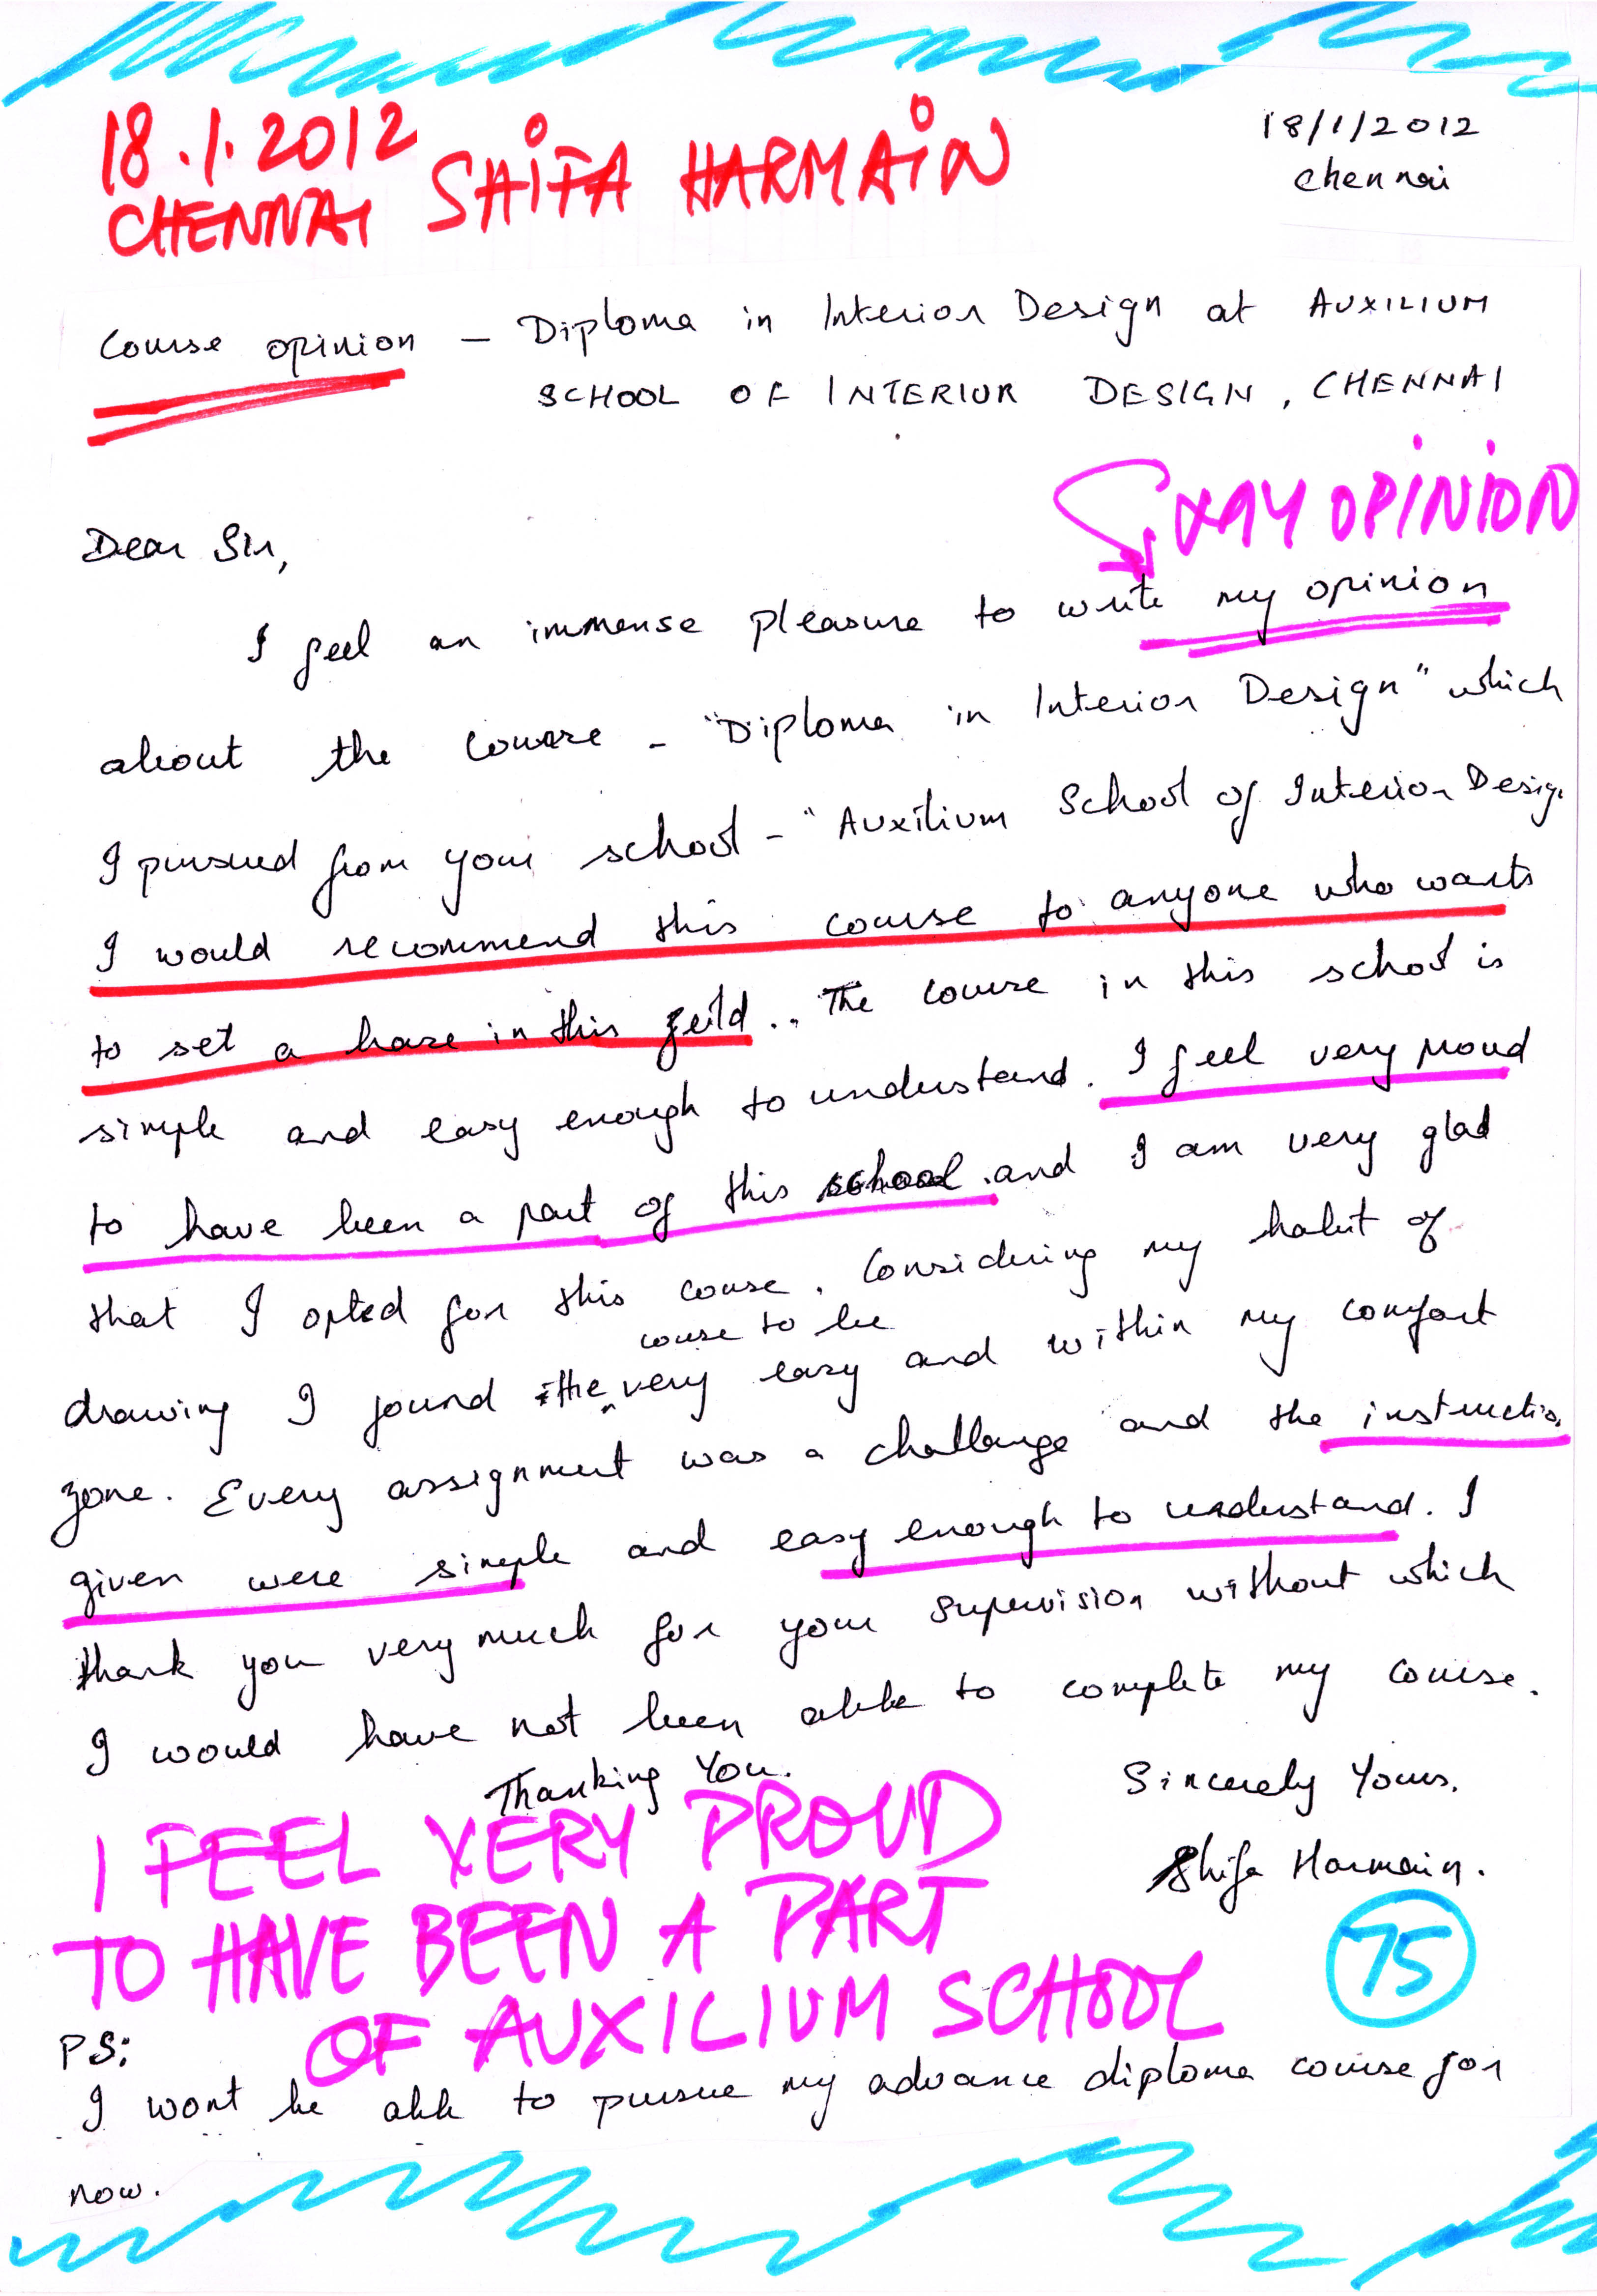 18.1.2012 SHIFA HARMAIN
CHENNAI
18/1/2012
Chennai
Course opinion — Diploma in Interior Design at AUXILIUM
SCHOOL OF INTERIOR DESIGN, CHENNAI
MY OPINION
Dear Sir,
I feel an immense pleasure to write my opinion
about the course - "Diploma in Interior Design" which
I pursued from your school - "Auxilium School of Interior Desig
I would recommend this course to anyone who wants
to set a base in this feild.. The course in this school is
simple and easy enough to understand. I feel very proud
to have been a part of this school. and I am very glad
that I opted for this couse. Considering my habit of
couse to be
drawing I found the very easy and within my comfort
zone. Every assignment was a challange and the instructio
given were simple and easy enough to understand. I
thank you very much for your supervision without which
I would have not been able to complete my course.
Thanking You.
Sincerely Yours.
Shifa Harmain.
I FEEL VERY PROUD
TO HAVE BEEN A PART
OF AUXILIUM SCHOOL
75
PS:
I wont be able to pursue my advance diploma course for
now.